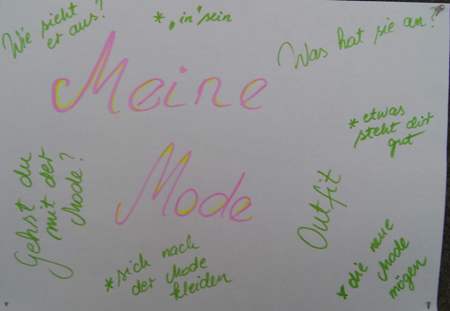 Wie sieht
er aus?
* „in“ sein
Was hat sie an?
Meine
* etwas
steht dir
gut
Gehst du
mit der
Mode?
Mode
Outfit
* sich nach
der Mode
kleiden
* die neue
Mode
mögen